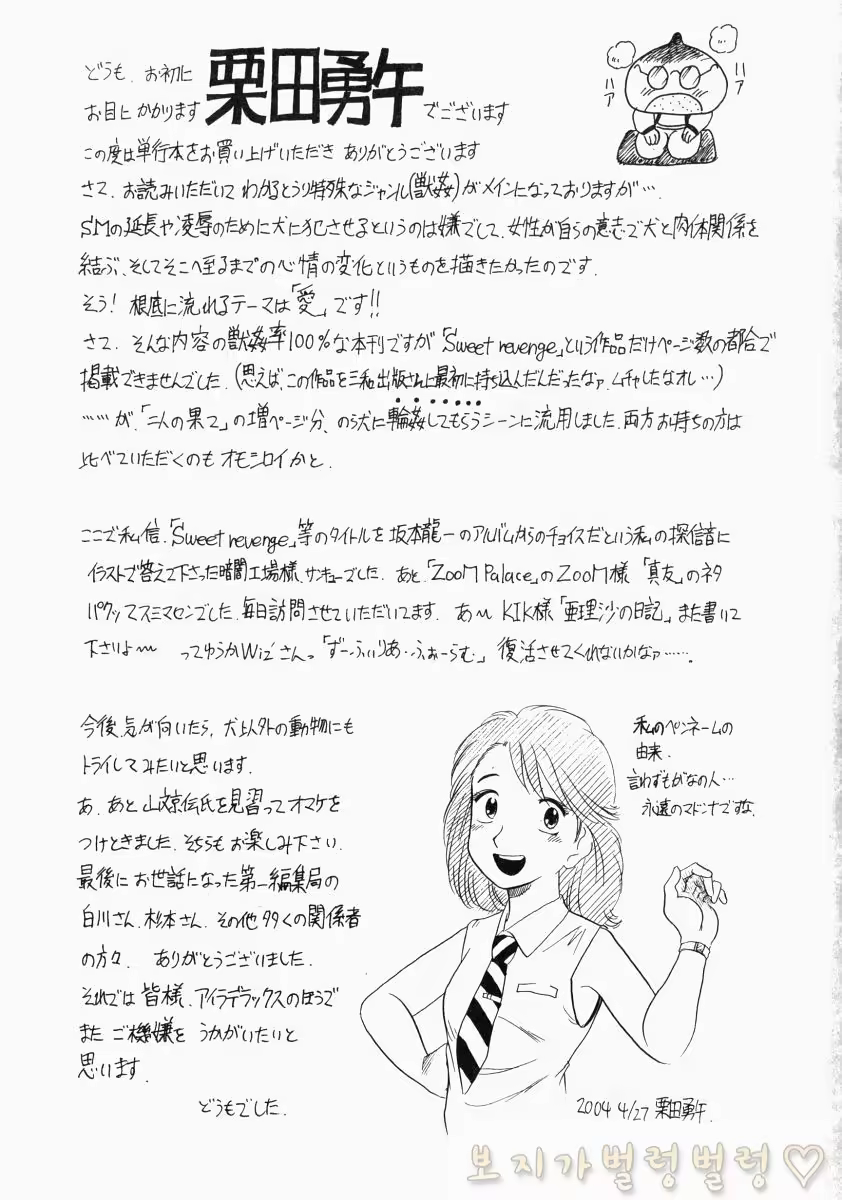 どうも、お初に
お目にかかります 栗田勇午 でございます
ハア
ハア
この度は単行本をお買い上げいただき ありがとうございます
さて、お読みいただいて わかるとうり特殊なジャンル(獣姦)がメインになっておりますが…、
SMの延長や凌辱のために犬に犯させるというのは嫌でして、女性が自らの意志で犬と肉体関係を
結ぶ、そしてそこへ至るまでの心情の変化というものを描きたかったのです。
そう! 根底に流れるテーマは「愛」です!!
さて、そんな内容の獣姦率100%な本刊ですが「Sweet revenge」という作品だけページ数の都合で
掲載できませんでした。(思えば、この作品を三和出版さんに最初に持ち込んだんだったなァ、ムチャしたなオレ…)
……が、「二人の果て」の増ページ分、のら犬に輪姦してもらうシーンに流用しました。両方お持ちの方は
比べていただくのも オモシロイかと。
ここで私信、「Sweet revenge」等のタイトルを坂本龍一のアルバムからのチョイスだという私の探信音に
イラストで答えて下さった暗闇工場様、サンキューでした。あと、「ZooM Palace」のZooM様「真友」のネタ
パクッてスミマセンでした。毎日訪問させていただいてます。 あ〜 KIK様「亜理沙の日記」また書いて
下さいよ〜 ってゆうかWiz'さんっ「ずーふぃりあ・ふぉーらむ」 復活させてくれないかなァ……。
今後、気が向いたら、犬以外の動物にも
トライしてみたいと思います。
あ、あと 山文京伝氏を見習ってオマケを
つけときました。そちらもお楽しみ下さい。
最後に お世話になった第一編集局の
白川さん、杉本さん、その他多くの関係者
の方々、 ありがとうございました。
それでは 皆様、アイラデラックスのほうで
また ご機嫌を うかがいたいと
思います。
どうもでした。
私のペンネームの
由来。
言わずもがなの人…
永遠のマドンナですな。
2004 4/27 栗田勇午.
보지가벌렁벌렁♡